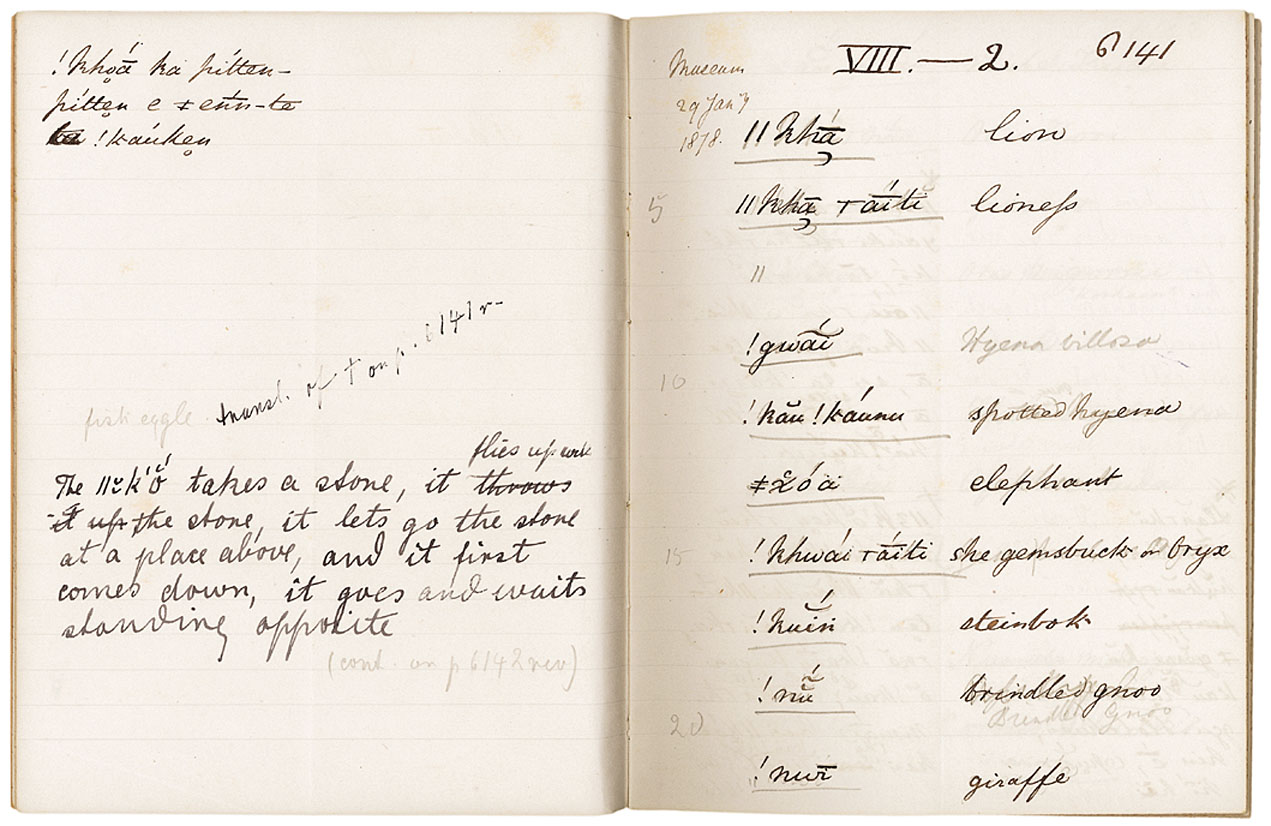 !khọā́ ka pítten-
pítten e ǂeńn-te
!kaúken
transl. of † on p. 6141 r-
flies up with
The takes a stone, it throws
it up the stone, it lets go the stone
at a place above, and it first
comes down, it goes and waits
standing opposite
(cont. on p 6142 rev)
VIII.—2. 6141
Museum
29 Jany
1878.
ǁkhā́ lion
5 ǁkhā rā́iti lioness
ǁ
!gwā́ĩ Hyena villosa
10
!kău !káunu spotted hyena
elephant
15 !khwái rā́iti she gemsbuck or Oryx
!kúĩń steinbok
!nŭ̃ brindled gnoo
Brindled Gnoo
20
!nwī giraffe